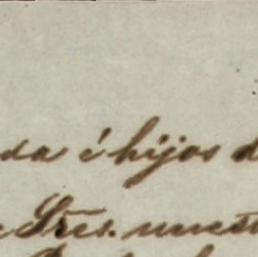 da é hijos d
Sres. nuest